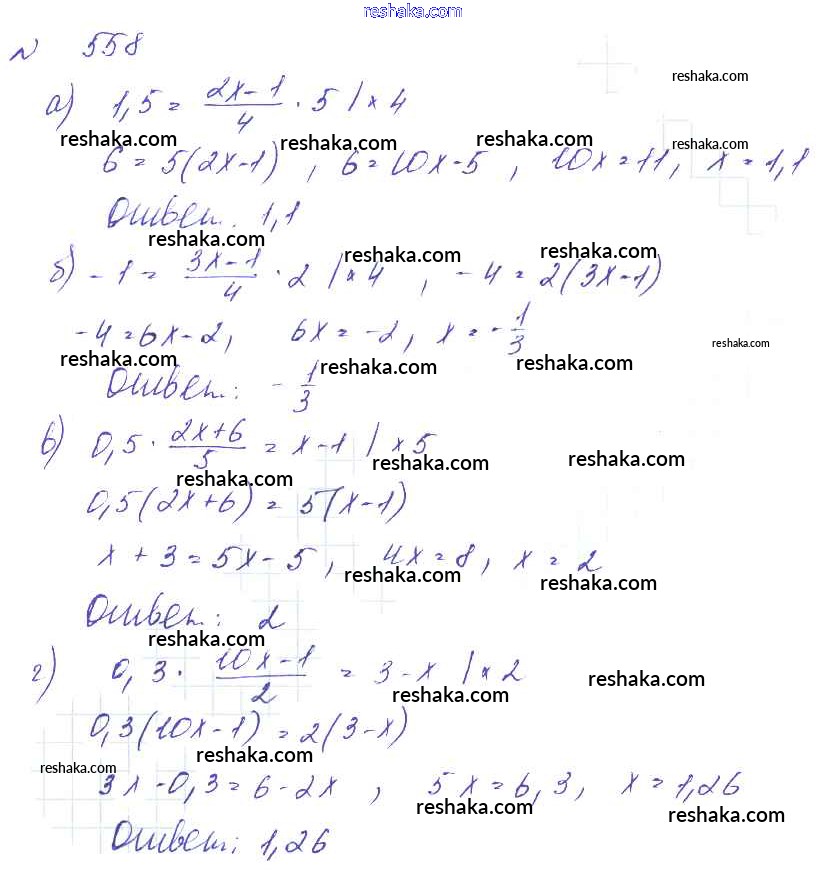 reshaka.com
№ 558
reshaka.com
а) 1,5 = (2x-1)/4 · 5 | × 4
reshaka.com reshaka.com reshaka.com reshaka.com
6 = 5(2x-1) , 6 = 10x-5 , 10x = 11, x = 1,1
Ответ. 1,1
reshaka.com reshaka.com reshaka.com
б) -1 = (3x-1)/4 · 2 | × 4 , -4 = 2(3x-1)
-4 = 6x-2, 6x = -2, x = -1/3
reshaka.com reshaka.com reshaka.com reshaka.com
Ответ: -1/3
в) 0,5 · (2x+6)/5 = x-1 | × 5
reshaka.com reshaka.com reshaka.com
0,5(2x+6) = 5(x-1)
x + 3 = 5x - 5, 4x = 8, x = 2
reshaka.com reshaka.com
Ответ: 2
reshaka.com
г) 0,3 · (10x-1)/2 = 3-x | × 2
reshaka.com reshaka.com
0,3(10x-1) = 2(3-x)
reshaka.com reshaka.com
3x-0,3 = 6-2x , 5x = 6,3, x = 1,26
reshaka.com reshaka.com
Ответ: 1,26